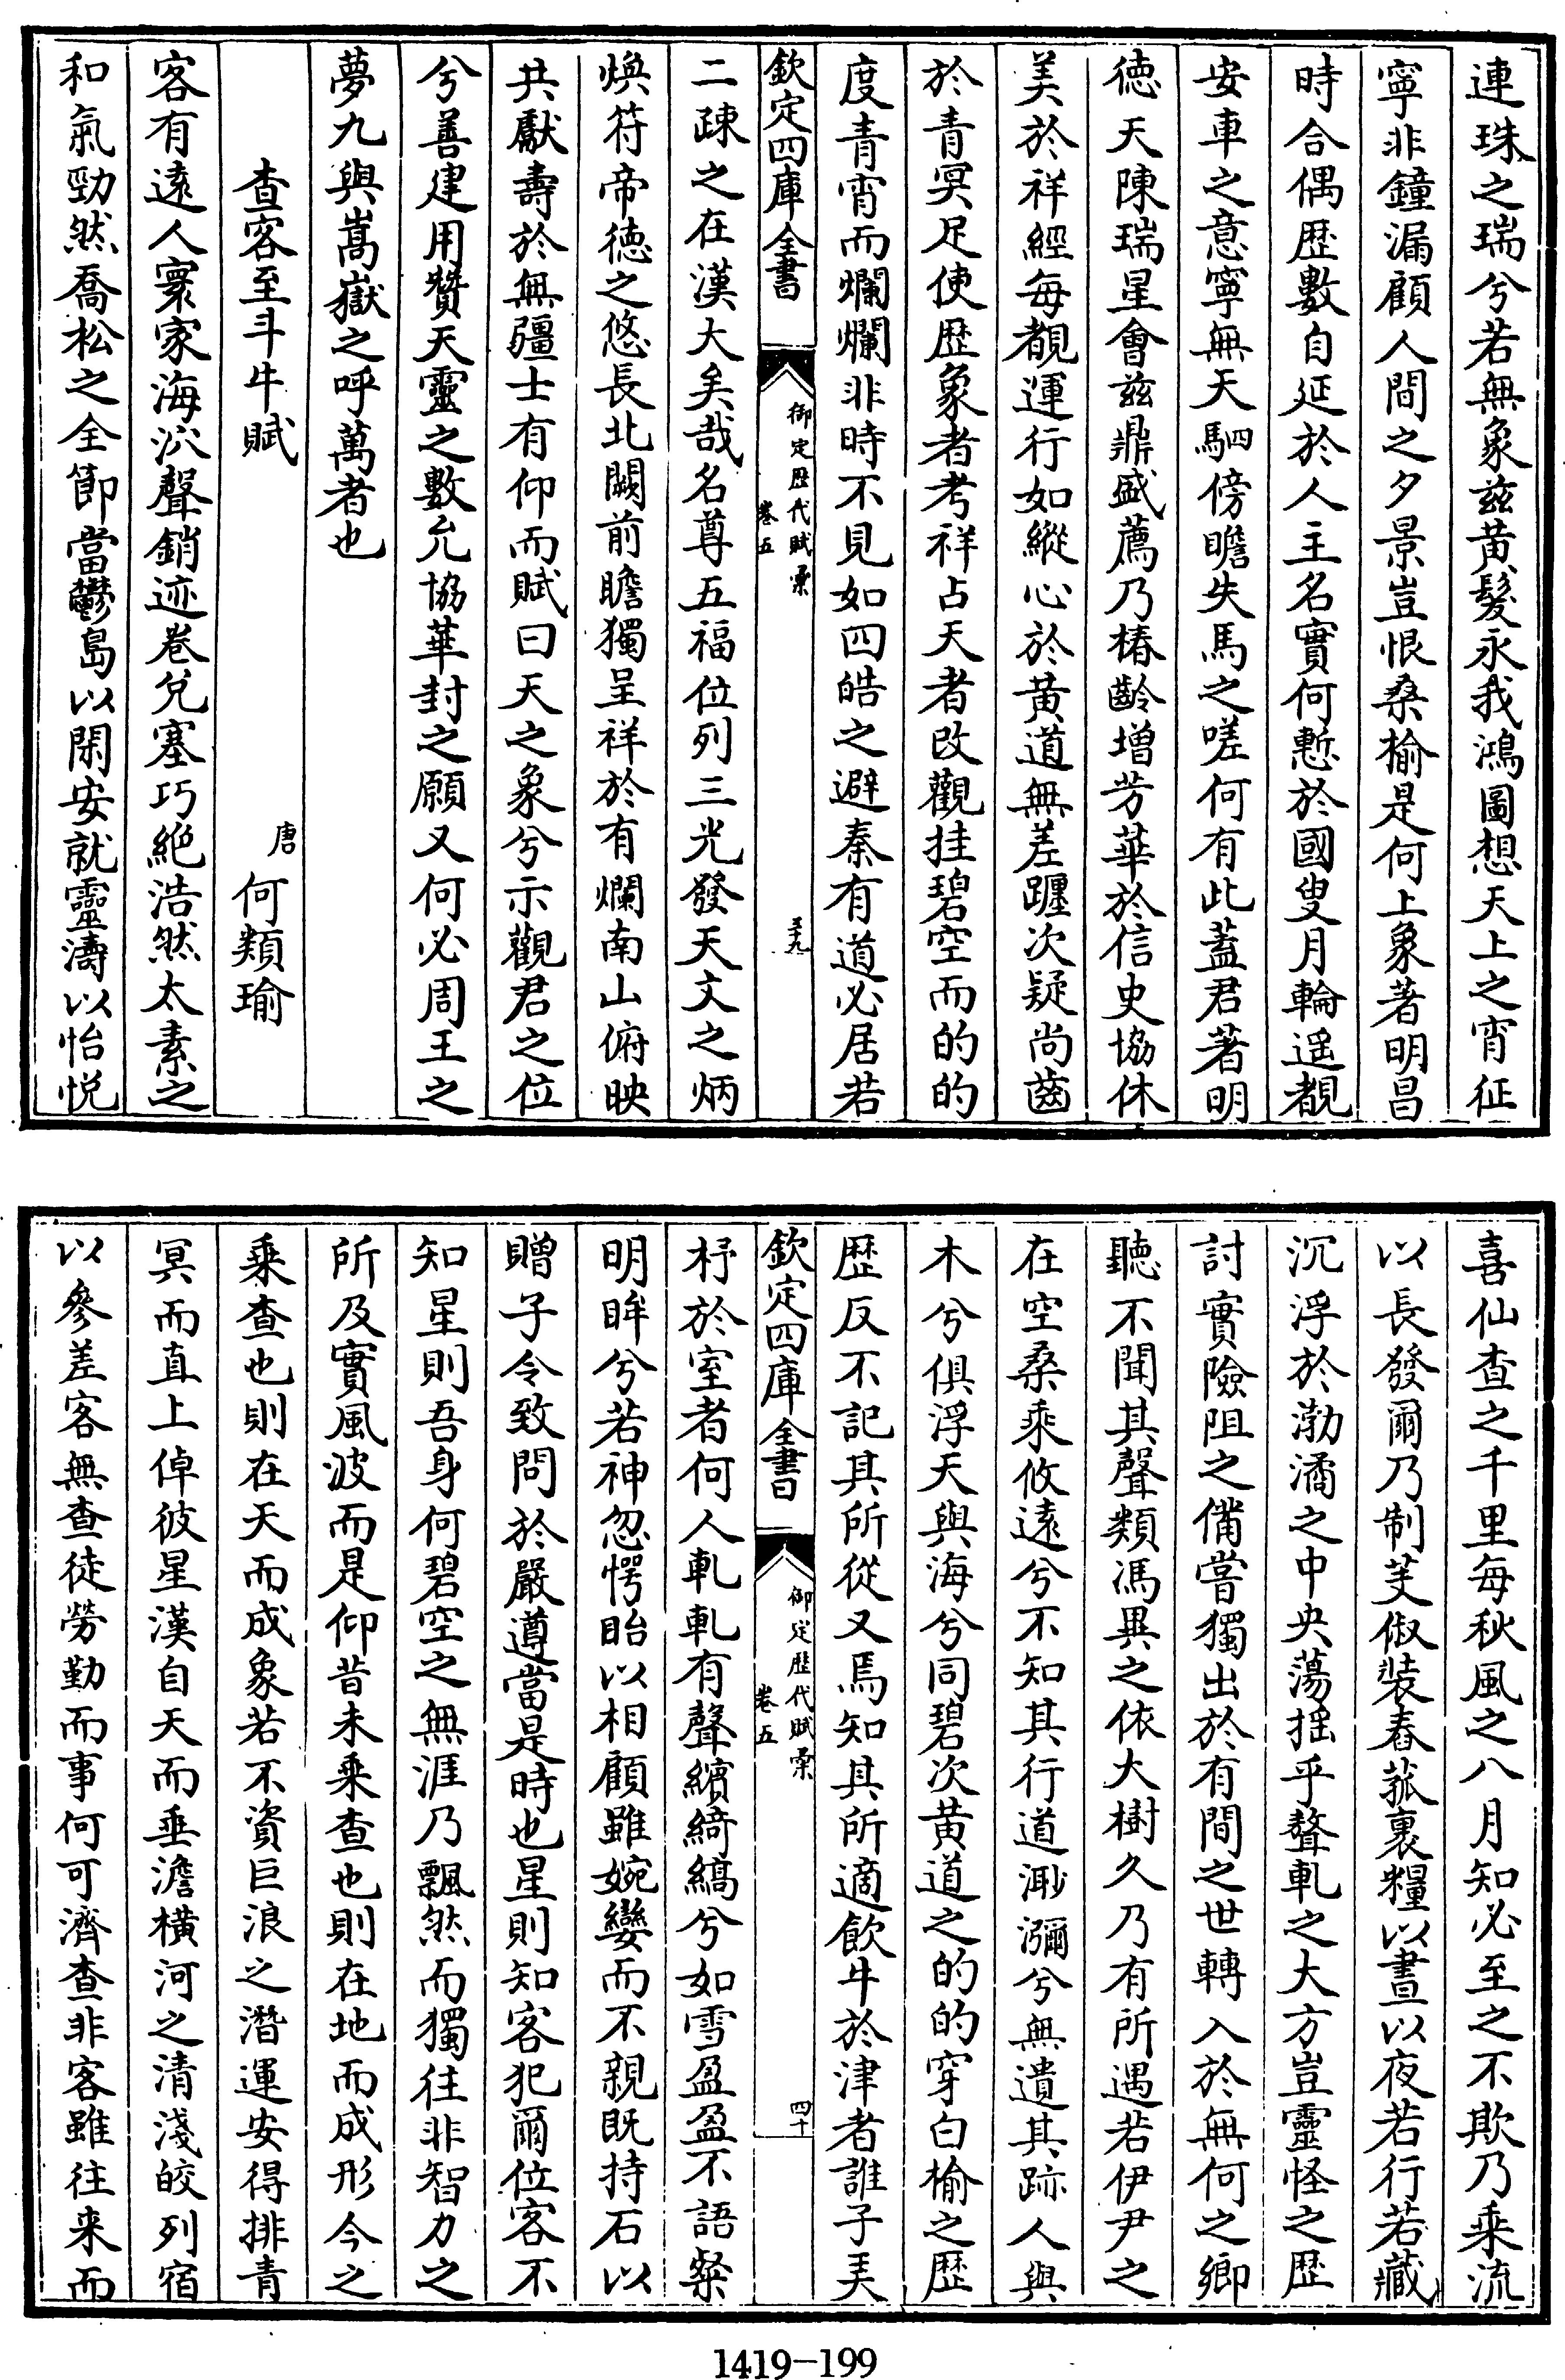 連珠之瑞兮若無象茲黃髮永我鴻圖想天上之宵征
寧非鐘漏顧人間之夕景豈恨桑榆是何上象著明昌
時合偶歴數自延於人主名實何慙於國叟月輪遥覩
安車之意寧無天駟傍瞻失馬之嗟何有此蓋君著明
徳天陳瑞星會茲鼎盛薦乃椿齡增芳華於信史協休
美於祥經每覩運行如縱心於黃道無差躔次疑尚齒
於青冥足使歴象者考祥占天者改觀挂碧空而的的
度青宵而爛爛非時不見如四皓之避秦有道必居若
欽定四庫全書
御定歴代賦彙
卷五
三十九
二疎之在漢大矣哉名尊五福位列三光發天文之炳
煥符帝徳之悠長北闕前瞻獨呈祥於有爛南山俯映
共獻壽於無疆士有仰而賦曰天之象兮示觀君之位
兮善建用贊天靈之數允協華封之願又何必周王之
夢九與嵩嶽之呼萬者也
查客至斗牛賦
唐 何類瑜
客有遠人寰家海㳂聲銷迹卷兌塞巧絶浩然太素之
和氣勁然喬松之全節當鬱島以閑安就靈濤以怡悅
喜仙查之千里每秋風之八月知必至之不欺乃乘流
以長發爾乃制芰俶裝舂菰裹糧以晝以夜若行若藏
沉浮於渤潏之中央蕩揺乎鼇軋之大方豈靈怪之歴
討實險阻之備嘗獨出於有間之世轉入於無何之鄉
聽不聞其聲類馮異之依大樹久乃有所遇若伊尹之
在空桑乘攸遠兮不知其行道㴐瀰兮無遺其跡人與
木兮俱浮天與海兮同碧次黃道之的的穿白榆之歴
歴反不記其所從又焉知其所適飲牛於津者誰子美
欽定四庫全書
御定歴代賦彙
卷五
四十
杼於室者何人軋軋有聲繽綺縞兮如雪盈盈不語粲
明眸兮若神忽愕眙以相顧雖婉孌而不親既持石以
贈子令致問於嚴遵當是時也星則知客犯爾位客不
知星則吾身何碧空之無涯乃飄然而獨往非智力之
所及實風波而是仰昔未乘查也則在地而成形今之
乘查也則在天而成象若不資巨浪之潛運安得排青
冥而直上倬彼星漢自天而垂澹橫河之清淺皎列宿
以參差客無查徒勞勤而事何可濟查非客雖往來而
1419-199